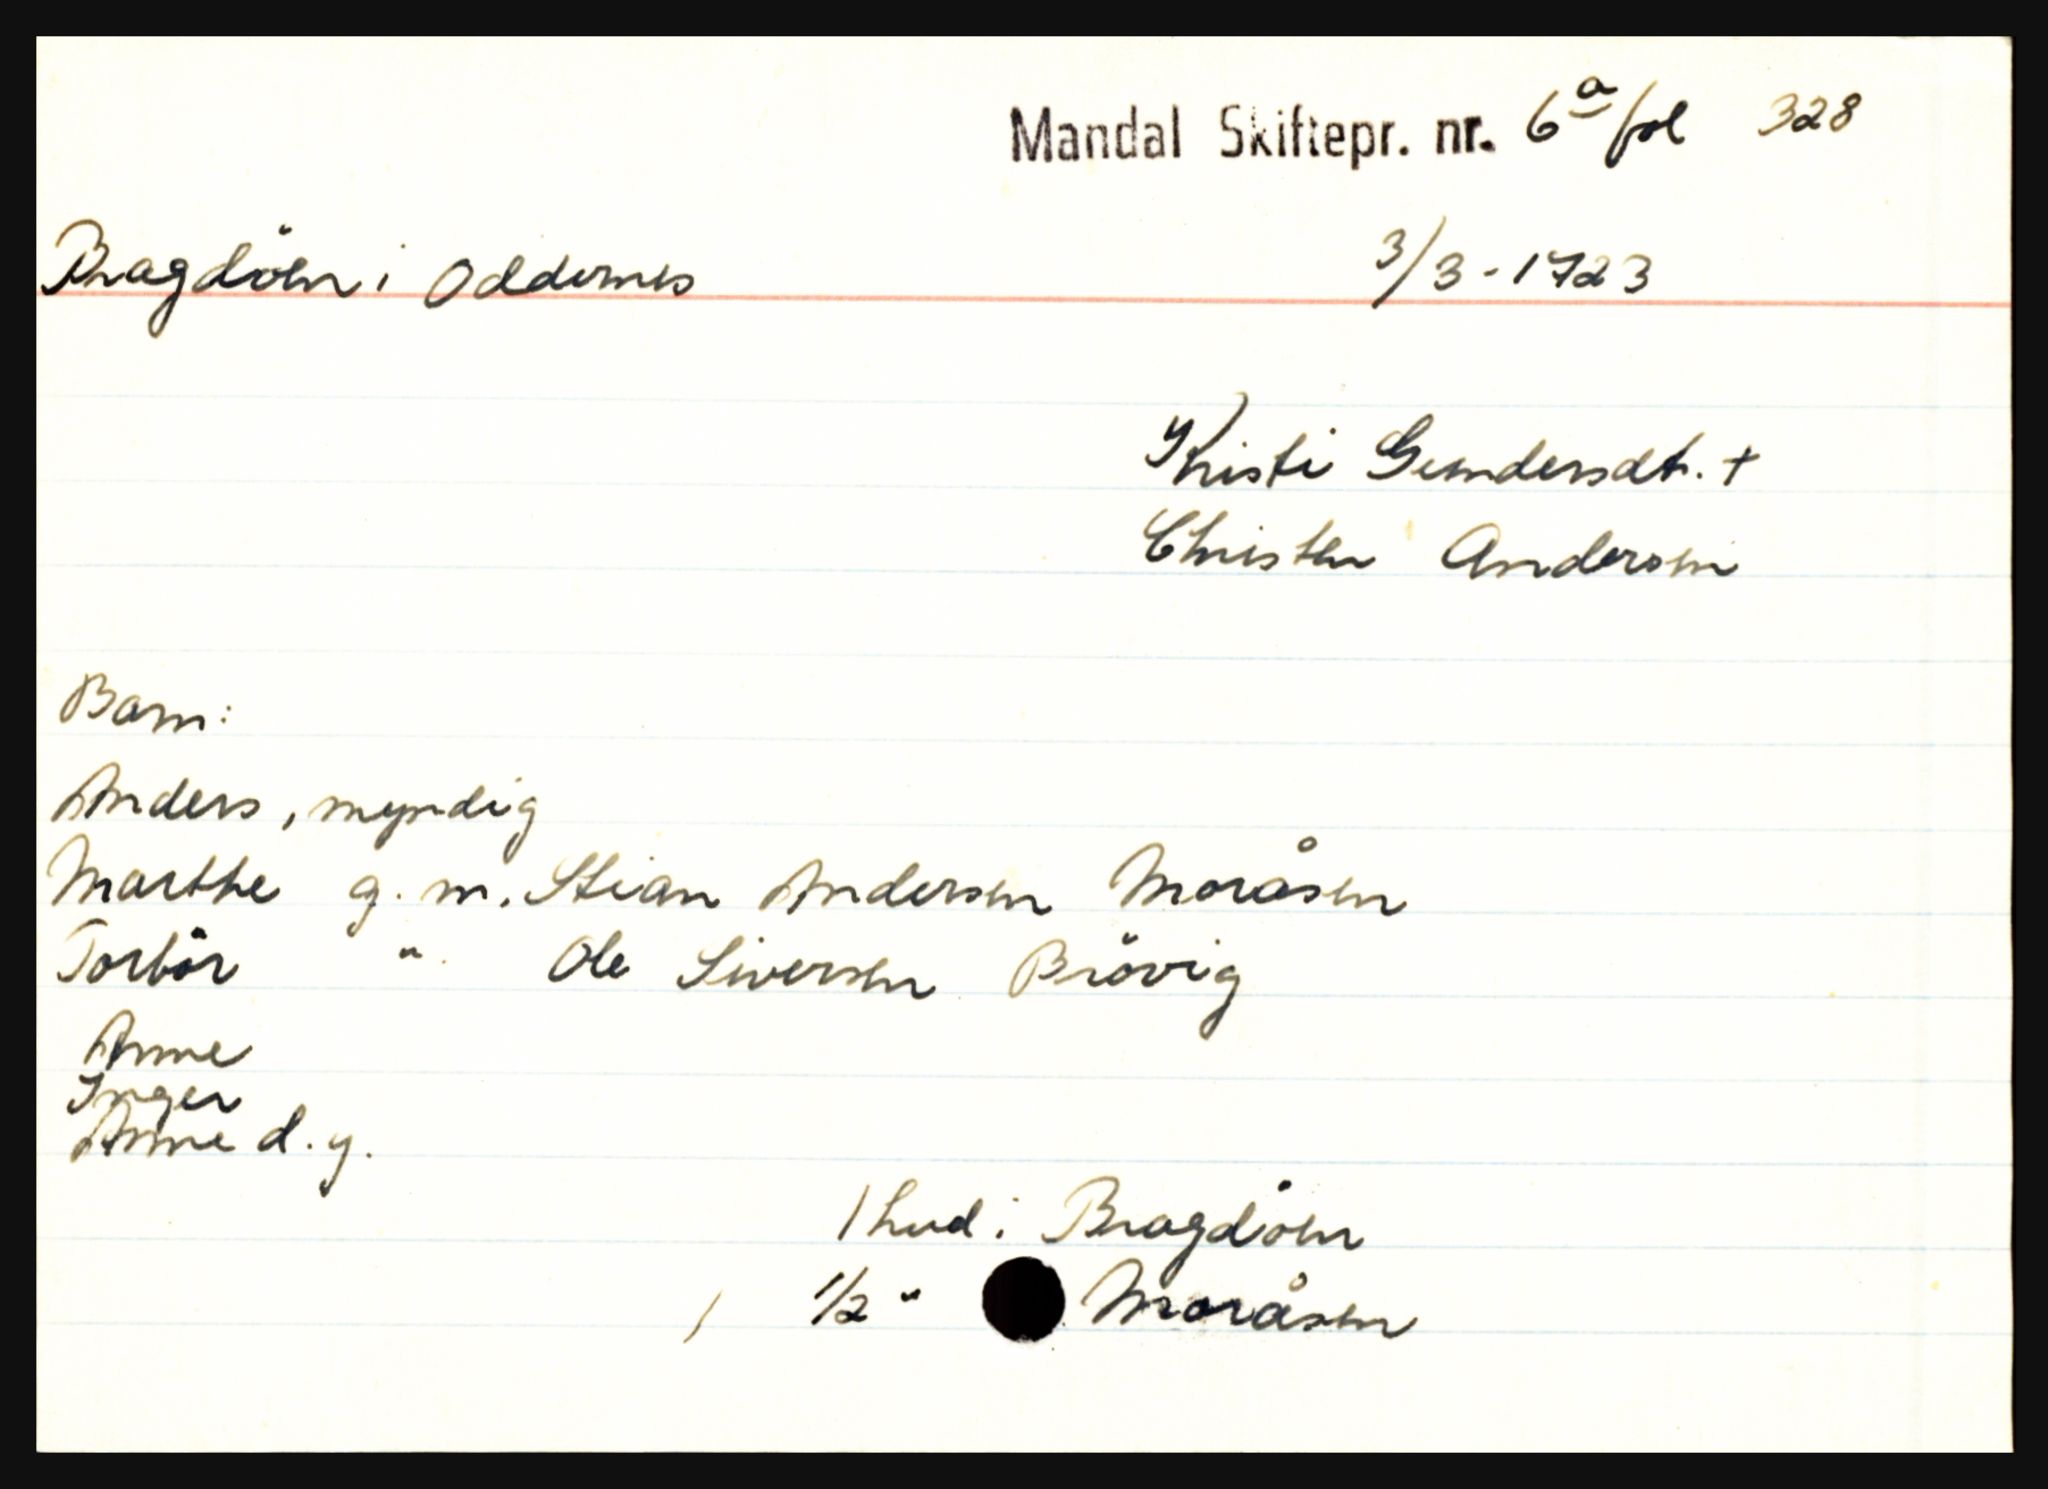 Mandal Skiftepr. nr. 6a fol 328
Bragdöen i Oddernes 3/3-1723
Kristi Gundersdtr. +
Christen Andersen
Barn:
Anders, myndig
Marthe g. m. Stian Andersen Moråsen
Torbör " Ole Siversen Brövig
Anne
Inger
Anne d. y.
1 hud i Bragdöen
1/2 " Moråsen